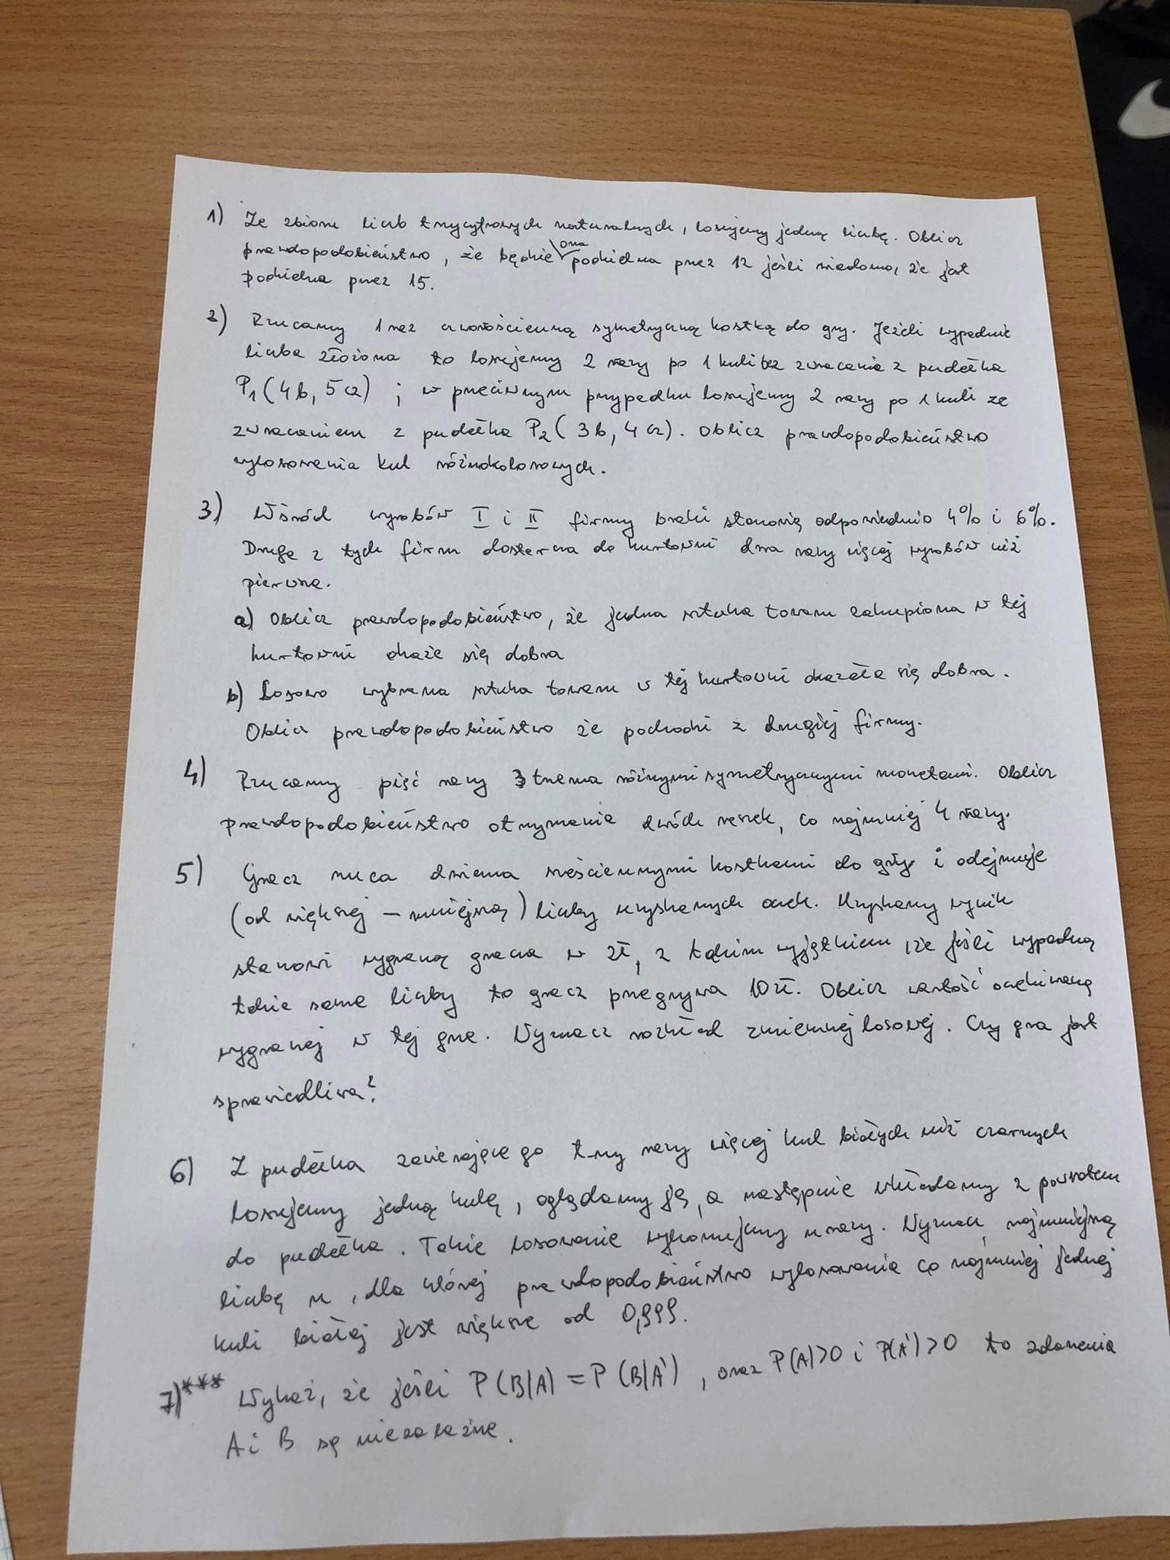 1) Ze zbioru liczb trzycyfrowych naturalnych, losujemy jedną liczbę. Oblicz
prawdopodobieństwo, że będzie ona podzielna przez 12 jeśli wiadomo, że jest
podzielna przez 15.
2) Rzucamy 1 raz czworościenną symetryczną kostką do gry. Jeżeli wypadnie
liczba złożona to losujemy 2 razy po 1 kuli bez zwracania z pudełka
P₁ (4b, 5cz) ; w przeciwnym przypadku losujemy 2 razy po 1 kuli ze
zwracaniem z pudełka P₂ (3b, 4cz). Oblicz prawdopodobieństwo
wylosowania kul różnokolorowych.
3) Wśród wyrobów I i II firmy braki stanowią odpowiednio 4% i 6%.
Druga z tych firm dostarcza do hurtowni dwa razy więcej wyrobów niż
pierwsza.
a) Oblicz prawdopodobieństwo, że jedna sztuka towaru zakupiona w tej
hurtowni okaże się dobra
b) Losowo wybrana sztuka towaru w tej hurtowni okazała się dobra.
Oblicz prawdopodobieństwo że pochodzi z drugiej firmy.
4) Rzucamy pięć razy 3 trzema różnymi symetrycznymi monetami. Oblicz
prawdopodobieństwo otrzymania dwóch reszek, co najmniej 4 razy.
5) Gracz rzuca dwiema sześciennymi kostkami do gry i odejmuje
(od większej – mniejszą) liczby uzyskanych oczek. Uzyskany wynik
stanowi wygraną gracza w zł, z takim wyjątkiem że jeśli wypadną
takie same liczby to gracz przegrywa 10 zł. Oblicz wartość oczekiwaną
wygranej w tej grze. Wyznacz rozkład zmiennej losowej. Czy gra jest
sprawiedliwa?
6) Z pudełka zawierającego trzy razy więcej kul białych niż czarnych
losujemy jedną kulę, oglądamy ją, a następnie wkładamy z powrotem
do pudełka. Takie losowanie wykonujemy n razy. Wyznacz najmniejszą
liczbę n, dla której prawdopodobieństwo wylosowania co najmniej jednej
kuli białej jest większe od 0,999.
7)*** Wykaż, że jeśli P(B|A) = P(B|A'), oraz P(A)>0 i P(A')>0 to zdarzenia
A i B są niezależne.